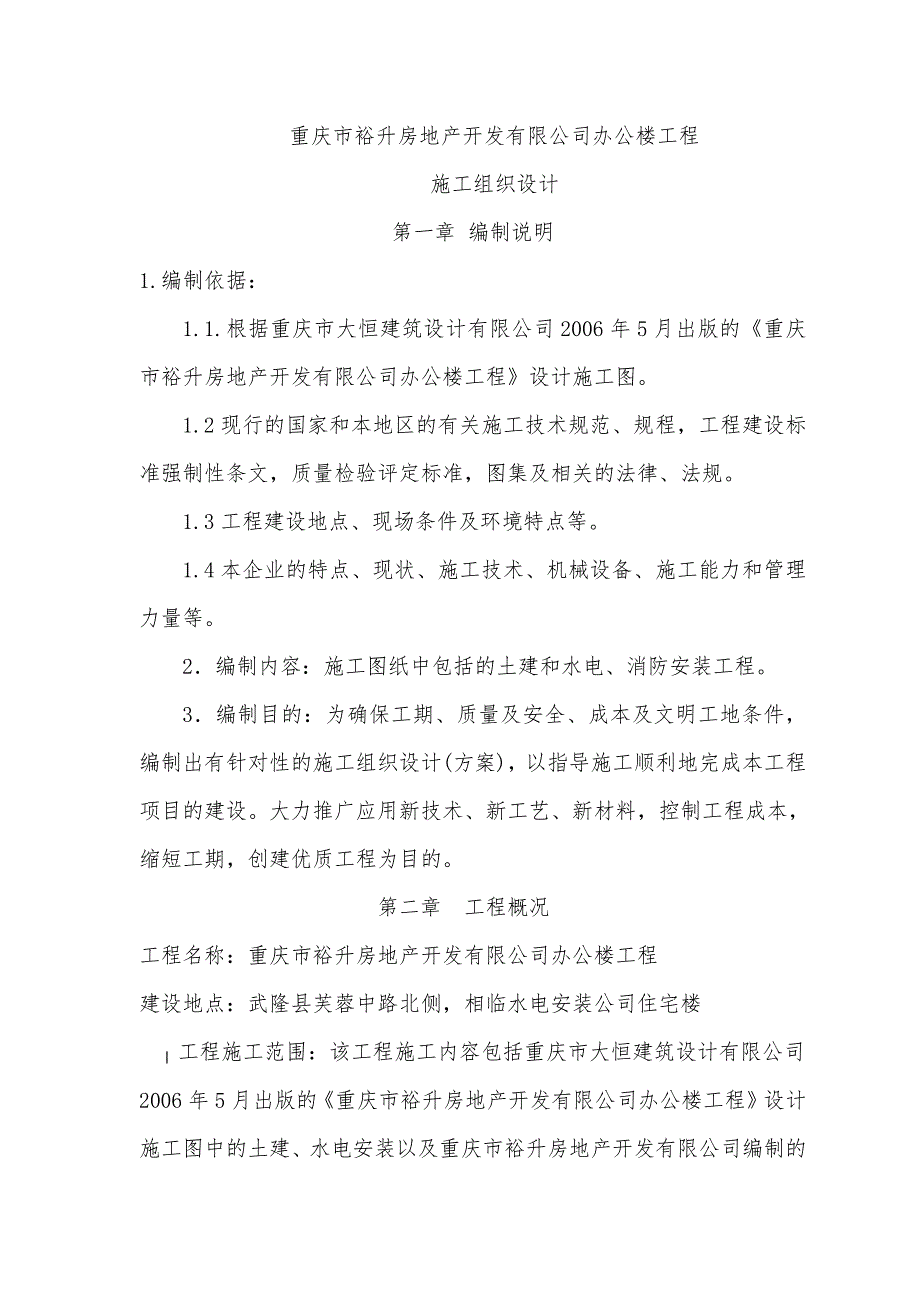 重庆市裕升房地产开发有限公司办公楼工程
施工组织设计
第一章 编制说明
1.编制依据：
1.1.根据重庆市大恒建筑设计有限公司2006年5月出版的《重庆
市裕升房地产开发有限公司办公楼工程》设计施工图。
1.2现行的国家和本地区的有关施工技术规范、规程，工程建设标
准强制性条文，质量检验评定标准，图集及相关的法律、法规。
1.3工程建设地点、现场条件及环境特点等。
1.4本企业的特点、现状、施工技术、机械设备、施工能力和管理
力量等。
2．编制内容：施工图纸中包括的土建和水电、消防安装工程。
3．编制目的：为确保工期、质量及安全、成本及文明工地条件，
编制出有针对性的施工组织设计(方案)，以指导施工顺利地完成本工程
项目的建设。大力推广应用新技术、新工艺、新材料，控制工程成本，
缩短工期，创建优质工程为目的。
第二章 工程概况
工程名称：重庆市裕升房地产开发有限公司办公楼工程
建设地点：武隆县芙蓉中路北侧，相临水电安装公司住宅楼
工程施工范围：该工程施工内容包括重庆市大恒建筑设计有限公司
2006年5月出版的《重庆市裕升房地产开发有限公司办公楼工程》设计
施工图中的土建、水电安装以及重庆市裕升房地产开发有限公司编制的